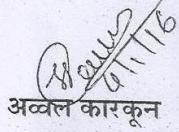 6/1/16
अव्वल कारकून